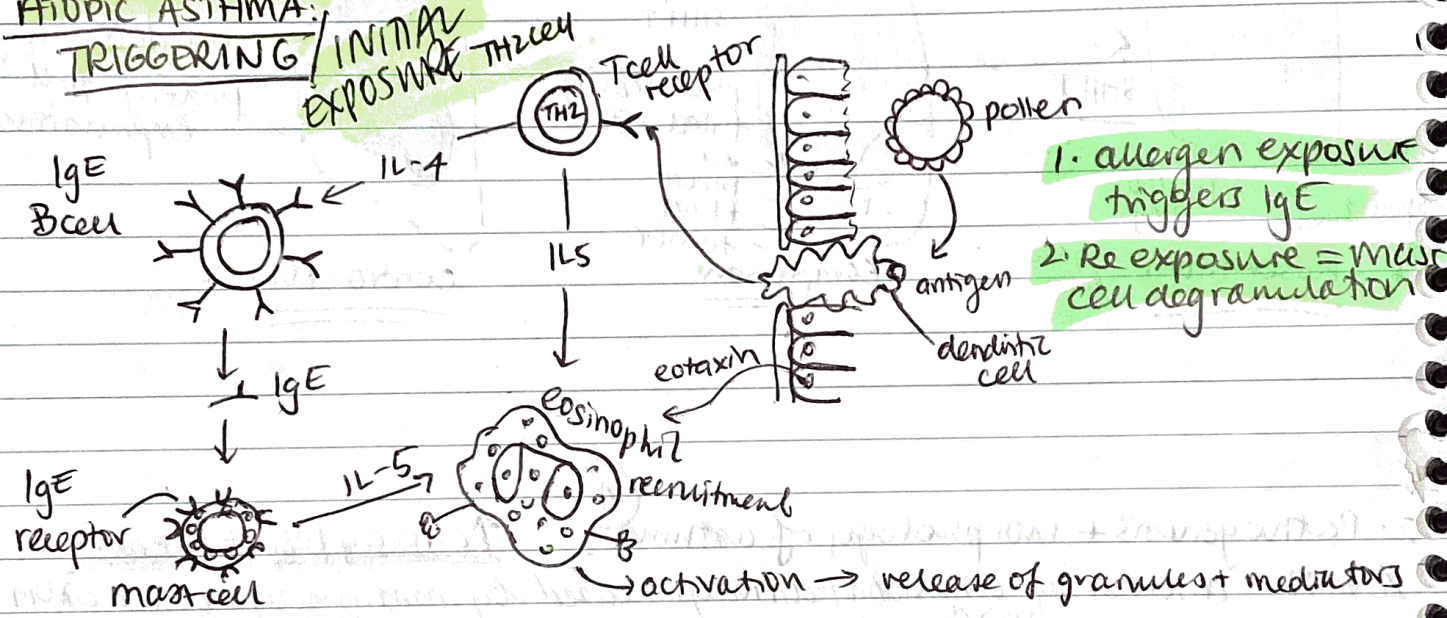 ATOPIC ASTHMA:
TRIGGERING / INITIAL
EXPOSURE TH2 cell
TH2
T cell
receptor
pollen
1. allergen exposure
triggers IgE
2. Re exposure = mast
cell degranulation
IL-4
IgE
B cell
IL5
antigen
dendritic
cell
eotaxin
IgE
eosinophil
recruitment
IL-5
IgE
receptor
mast cell
activation → release of granules + mediators